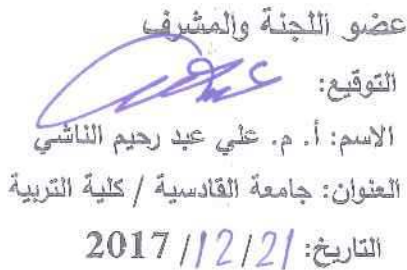 عضو اللجنة والمشرف
التوقيع:
الاسم: أ. م. علي عبد رحيم الناشي
العنوان: جامعة القادسية / كلية التربية
التاريخ: 21/ 12/ 2017